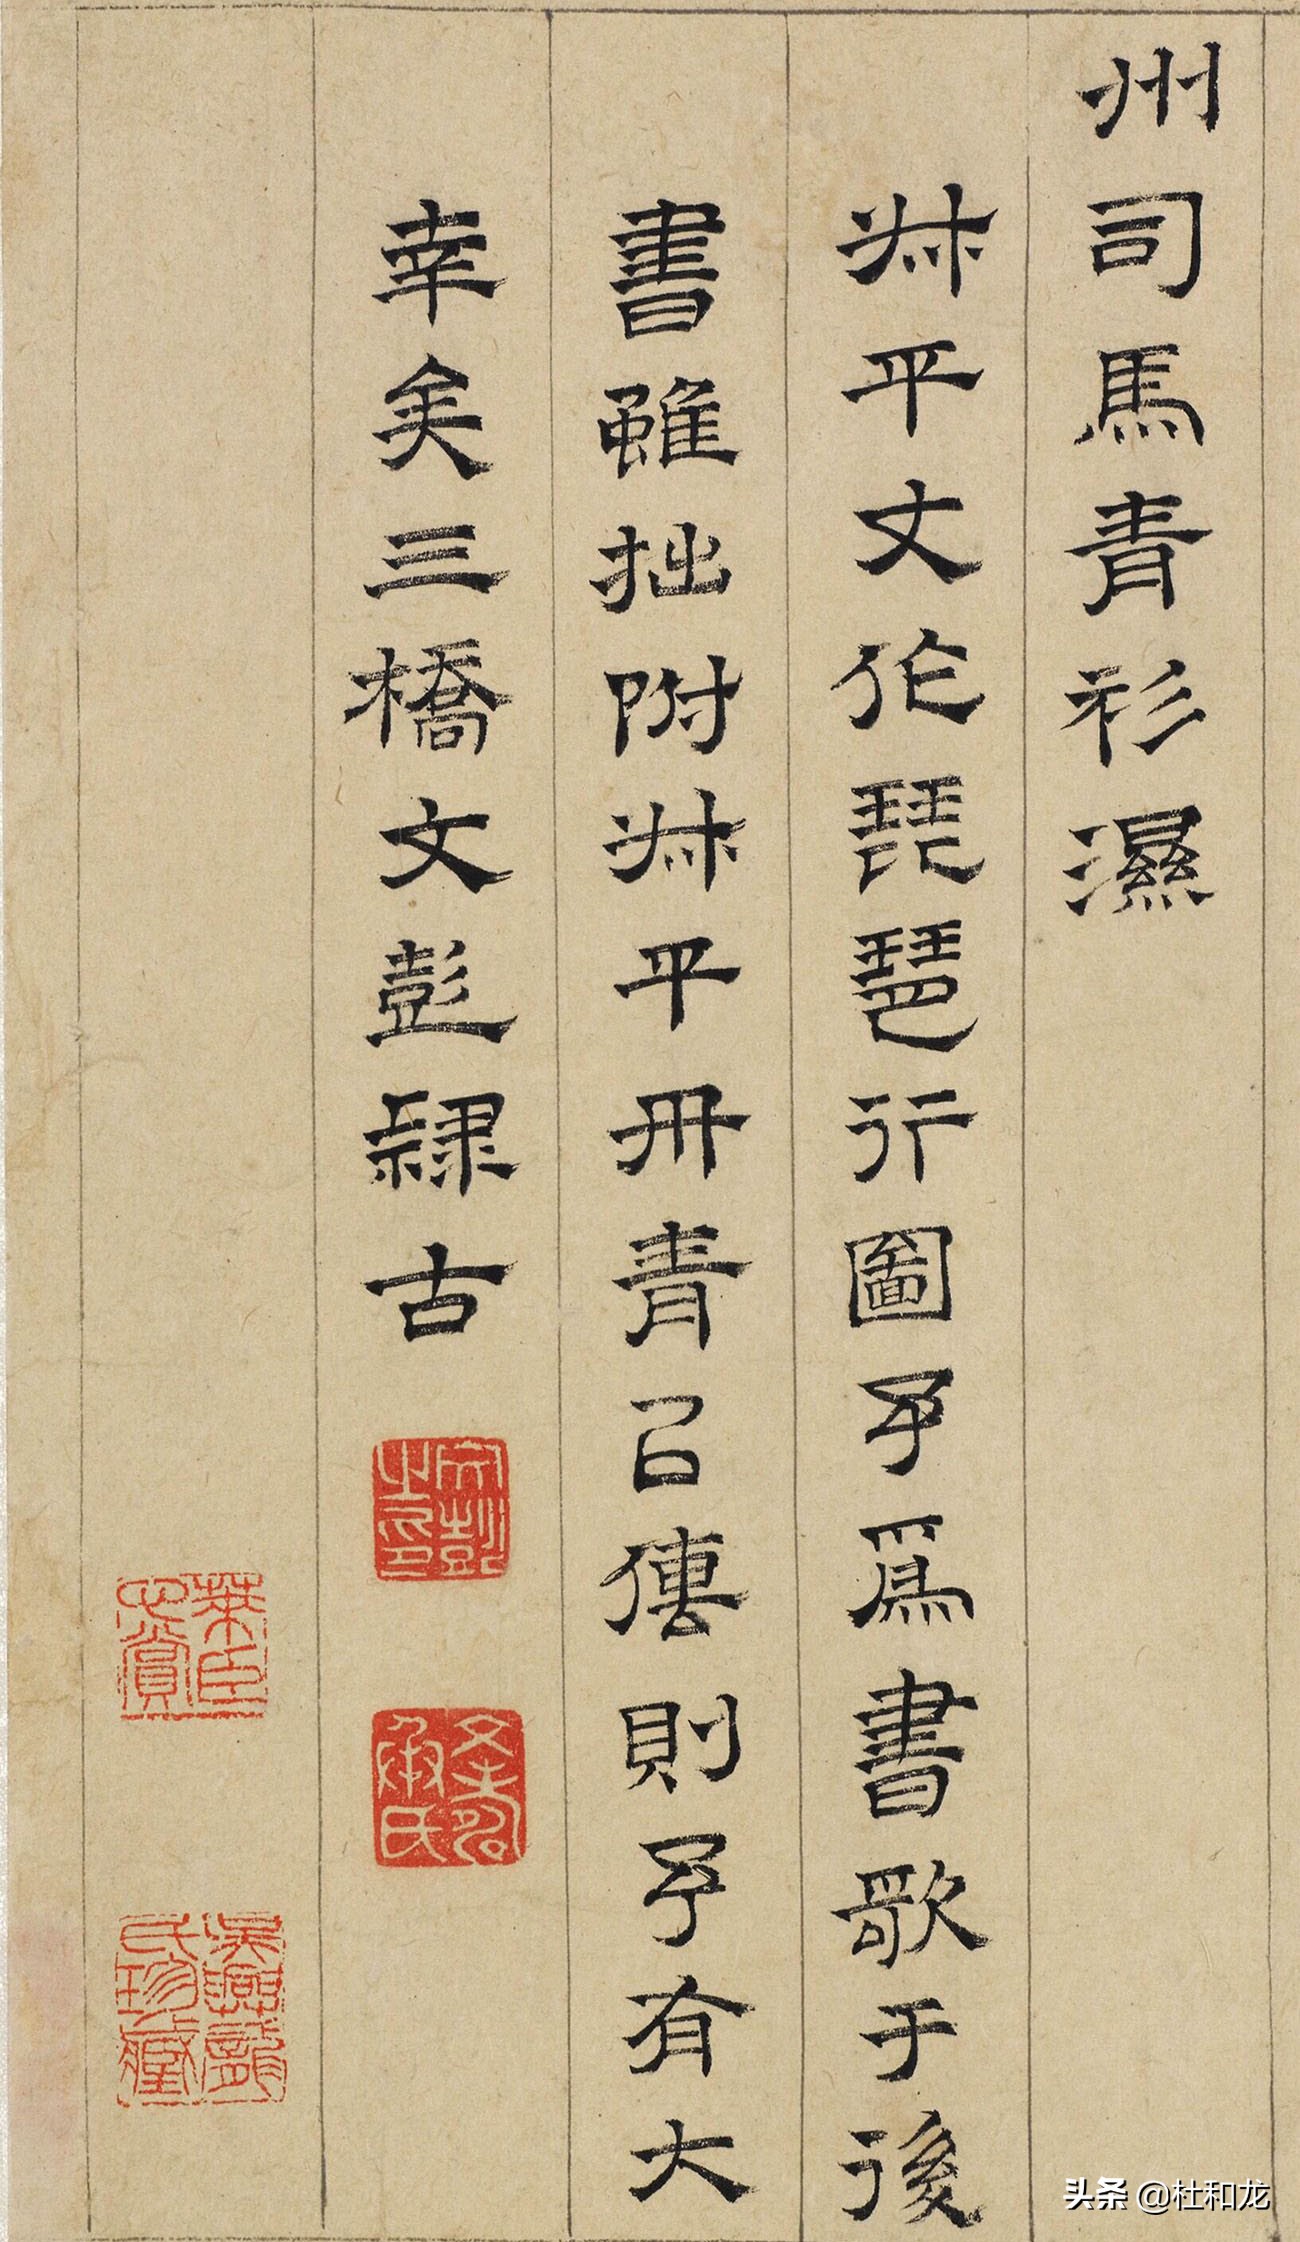 州司馬青衫濕
叔平丈作琵琶行圖予爲書歌于後
書雖拙附叔平丹青㠯傳則予有大
幸矣三橋文彭隸古
文彭之印
文壽承氏
萊臣心賞
吳興龐氏珍藏
头条 @杜和龙